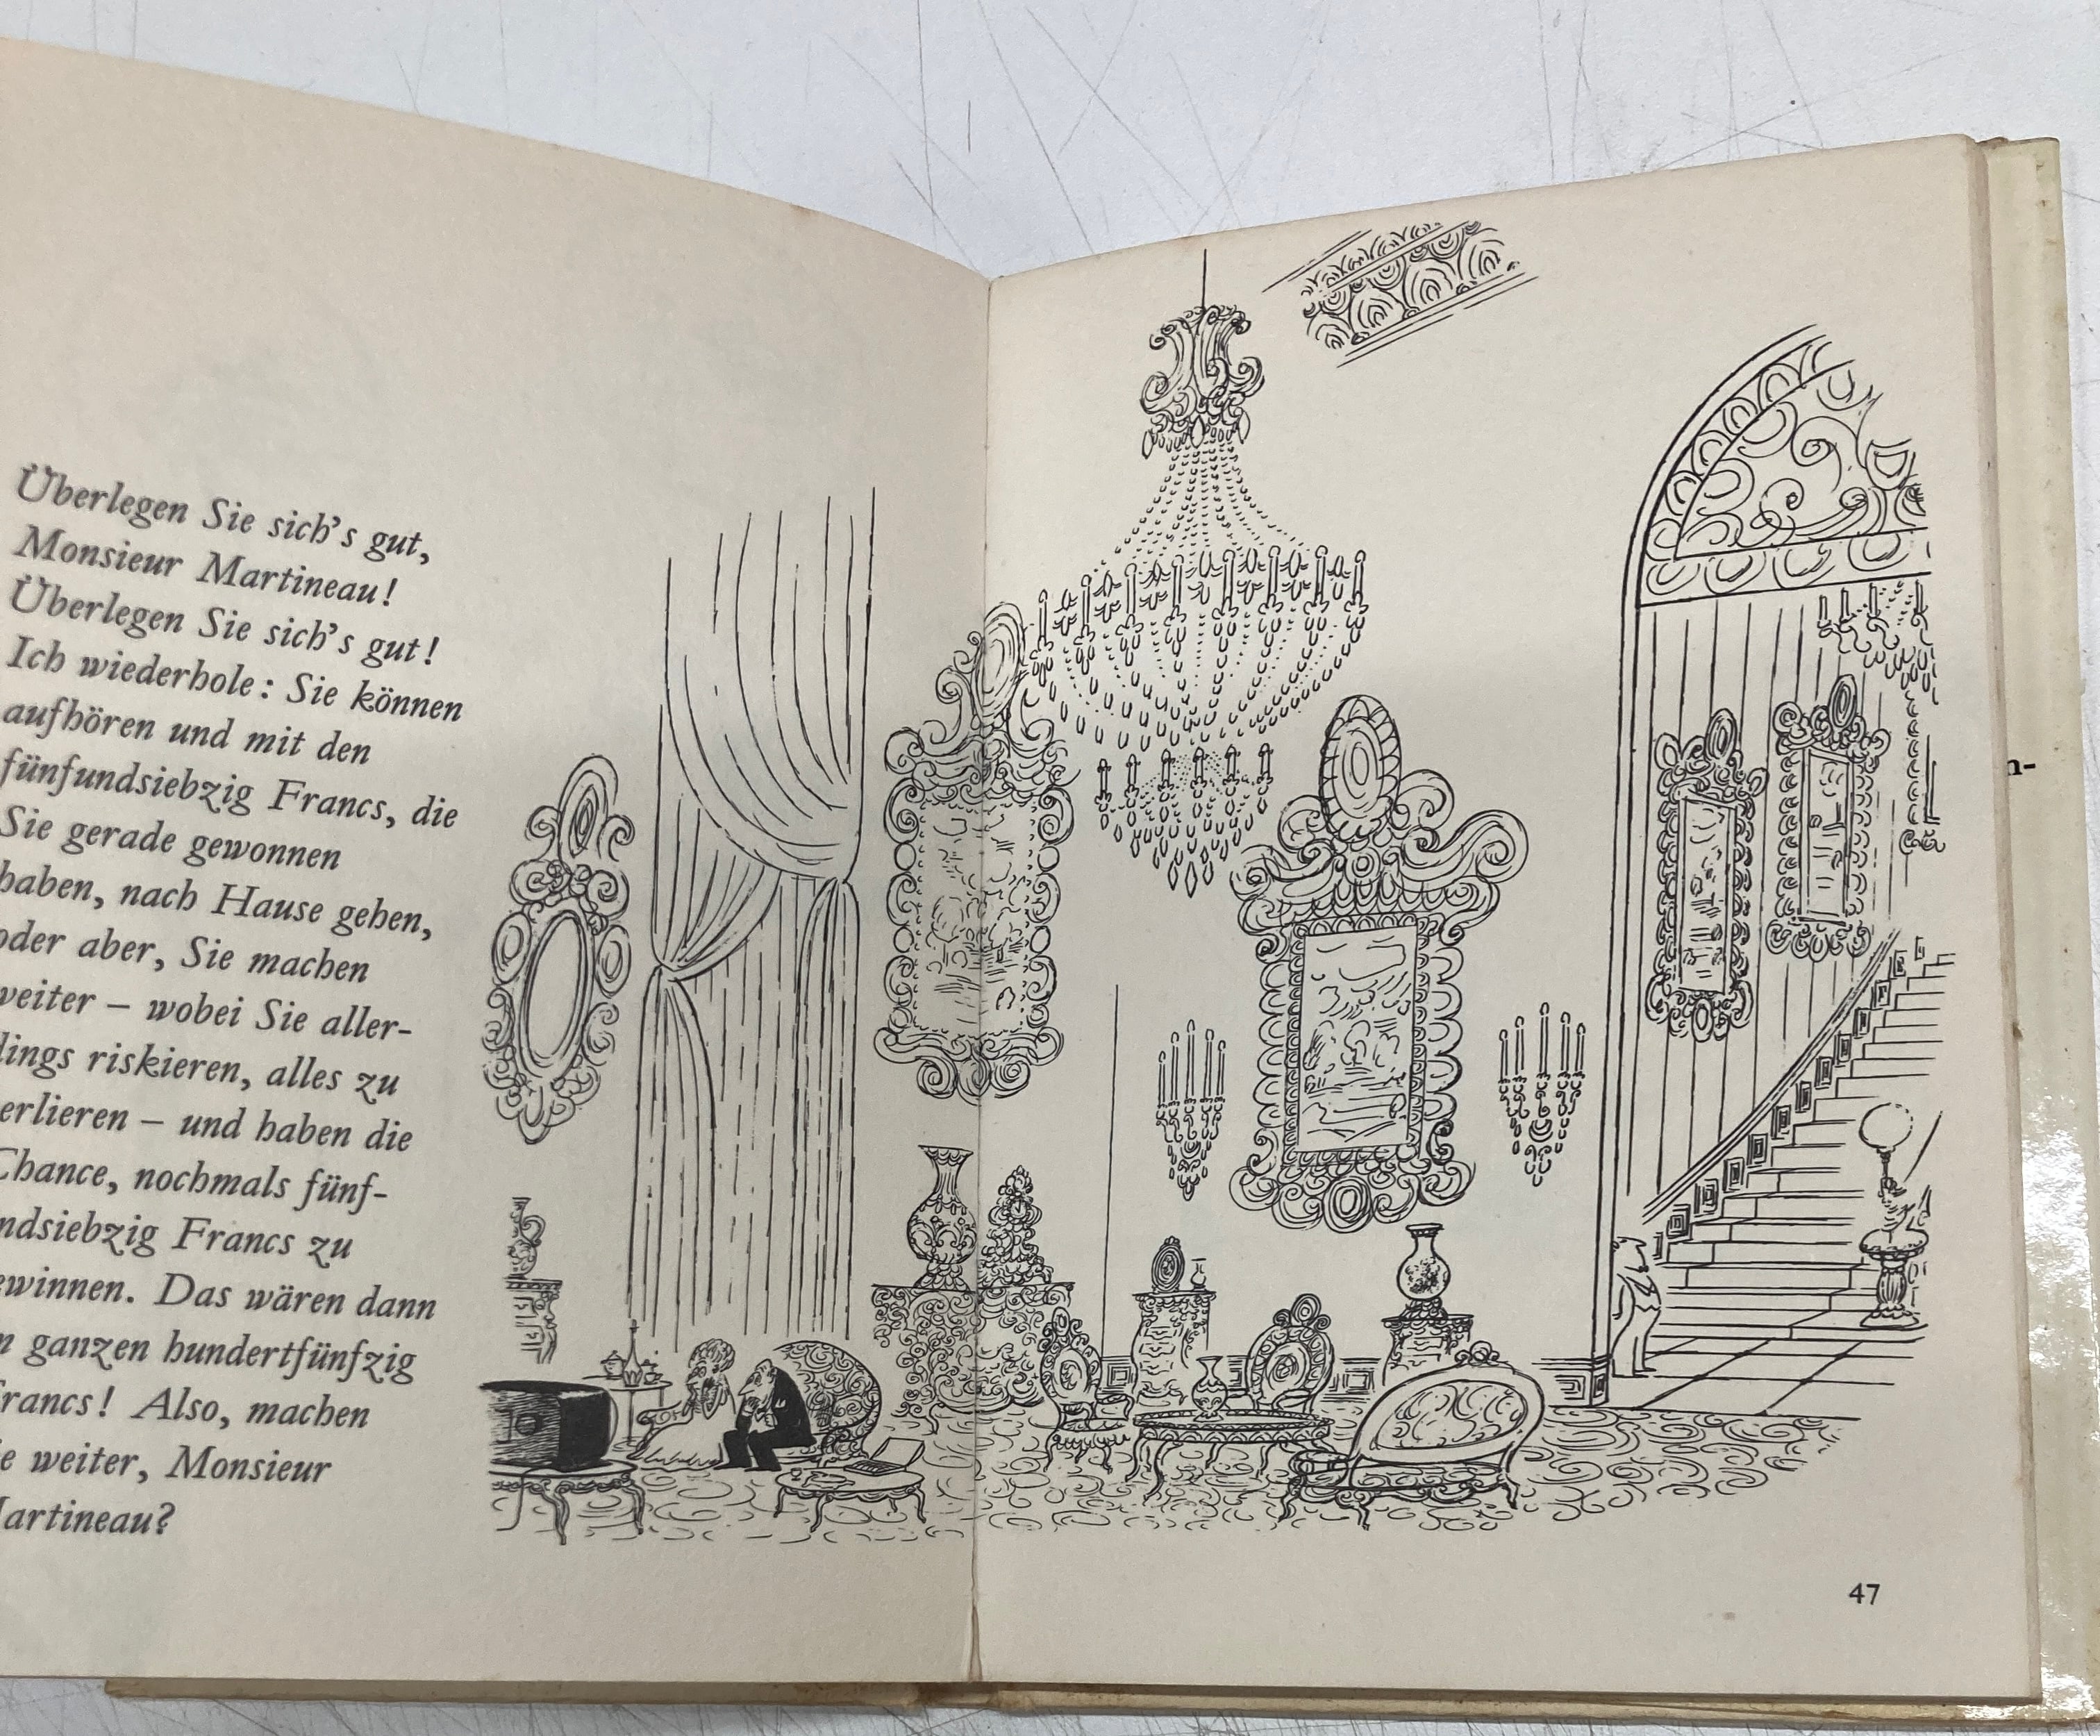 Überlegen Sie sich's gut,
Monsieur Martineau!
Überlegen Sie sich's gut!
Ich wiederhole: Sie können
aufhören und mit den
fünfundsiebzig Francs, die
Sie gerade gewonnen
haben, nach Hause gehen,
oder aber, Sie machen
weiter – wobei Sie aller-
dings riskieren, alles zu
erlieren – und haben die
Chance, nochmals fünf-
ndsiebzig Francs zu
ewinnen. Das wären dann
m ganzen hundertfünfzig
Francs! Also, machen
ie weiter, Monsieur
Martineau?
47
n-